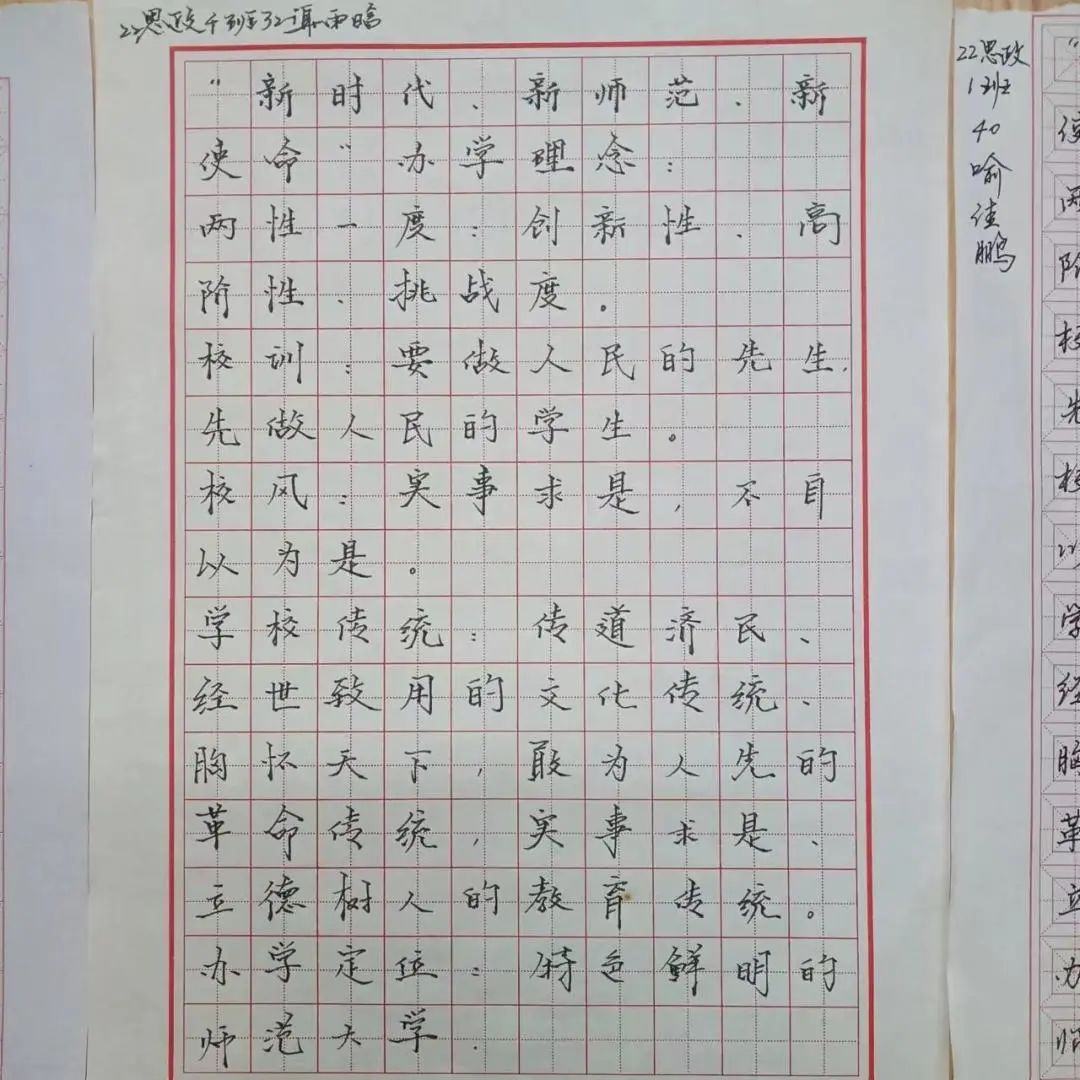 22思政
"新时代、新师范、新
使命"办学理念：
两性一度：创新性、高
阶性、挑战度。
校训：要做人民的先生，
先做人民的学生。
校风：实事求是，不自
以为是。
学校传统：传道济民、
经世致用的文化传统、
胸怀天下，敢为人先的
革命传统，实事求是、
立德树人的教育传统。
办学定位：特色鲜明的
师范大学.
22思政
1班
40
喻
佳
鹏
"
使
两
阶
校
先
校
以
学
经
胸
革
立
办
师